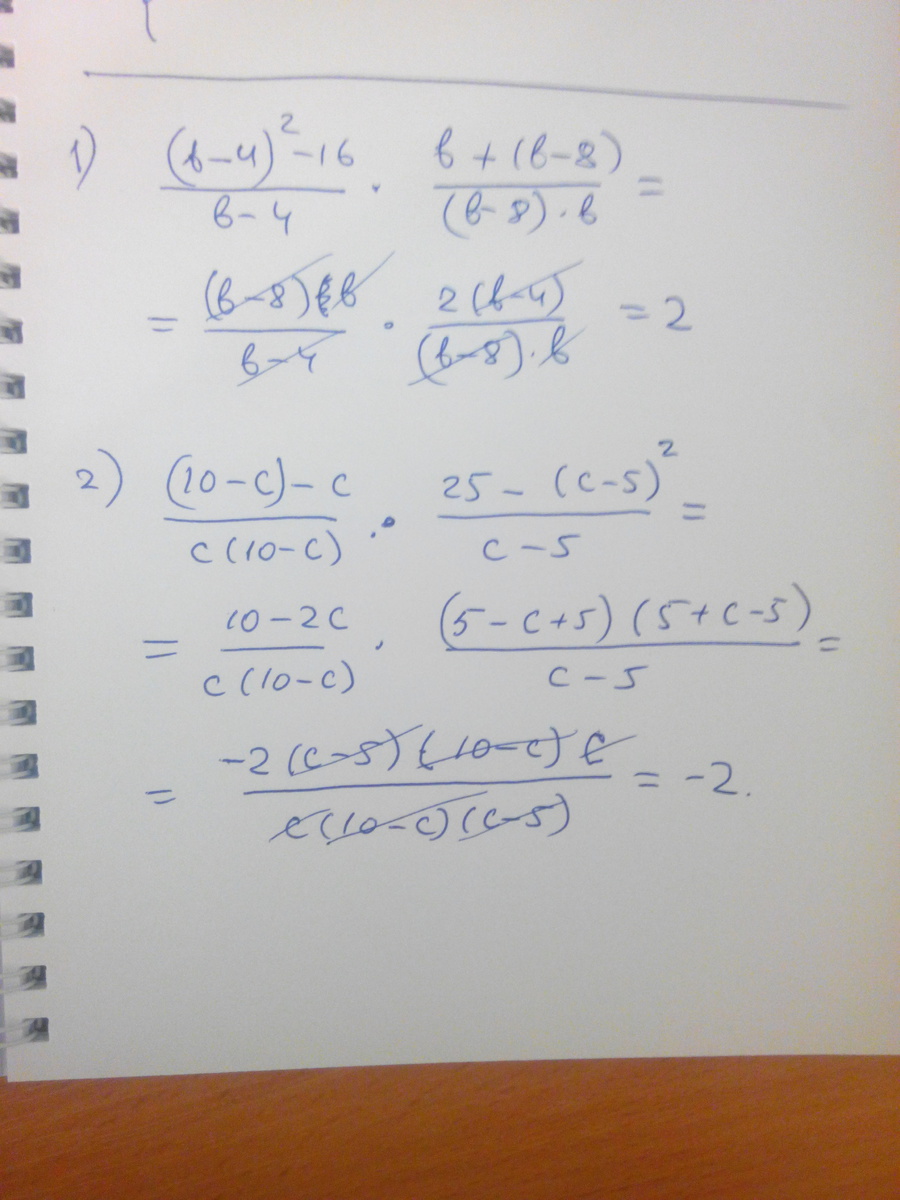 1) ((b-4)²-16)/(b-4) · (b+(b-8))/((b-8)·b) =
= ((b-8)b)/(b-4) · (2(b-4))/((b-8)·b) = 2
2) ((10-c)-c)/(c(10-c)) · (25-(c-5)²)/(c-5) =
= (10-2c)/(c(10-c)) · ((5-c+5)(5+c-5))/(c-5) =
= (-2(c-5)(10-c)c)/(c(10-c)(c-5)) = -2.